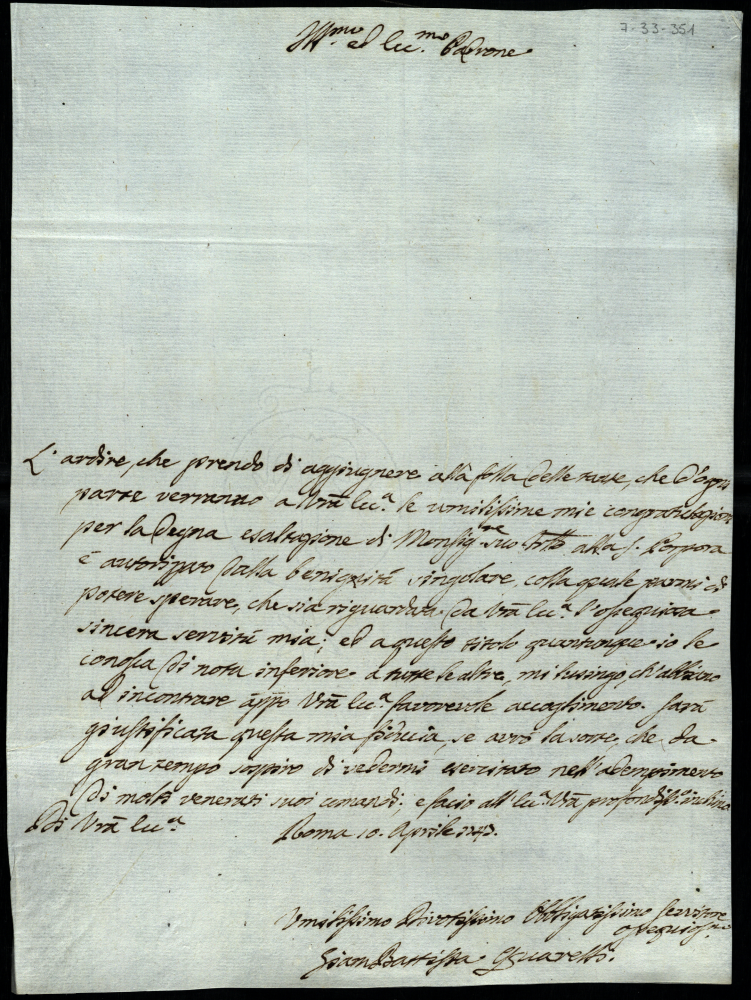 7-33-351
Ill.mo ed Ecc.mo Padrone
L'ardire, che prendo di aggiugnere alla folla delle tante, che d'ogni
parte verranno a Vra Ecc.a le umilissime mie congratulazioni
per la degna esaltazione di Monsig.re suo alla S. Porpora
è autorizzato dalla benignità singolare, colla quale parmi di
potere sperare, che sia riguardata da Vra Ecc.a l'ossequiosa
sincera servitù mia; ed a questo titolo quantunque io le
conosca di nota inferiore a tutte le altre, mi lusingo, ch'abbiano
ad incontrare appo Vra Ecc.a favorevole accoglimento. Sarà
giustificata questa mia fiducia, se avrò la sorte, che da
gran tempo sospiro di vedermi esercitato nell'adempimento
di molti venerati suoi comandi; e facio all'Ecc.a Vra profondiss.o inchino
Di Vra Ecc.a Roma 10. Aprile 1743.
Umilissimo Divotissimo Obbligatissimo Servitore
ossequios.mo
Giam Battista